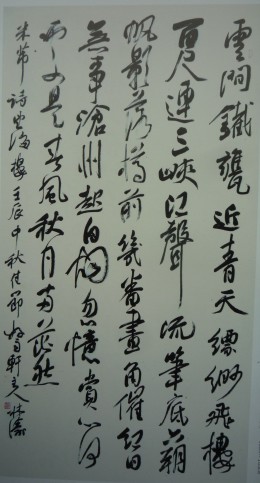 雲間鐵甕近青天縹緲飛樓
百尺連三峽江聲流筆底六朝
帆影落樽前幾番畫角催紅日
無事滄州起白烟忽憶賞心何
處是春風秋月兩茫然
米芾詩望海樓壬辰中秋佳節軒主人